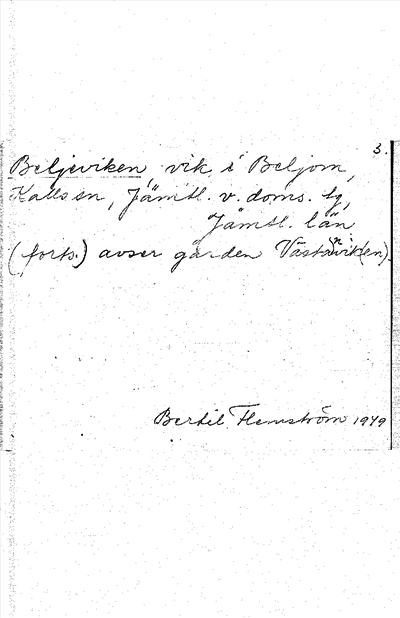 3.
Beljeviken, vik i Beljom,
Kalls sn, Jämtl. v. doms. tg,
Jämtl. län
(forts.) avser gården Västanvik(en).
Bertil Flemström 1979